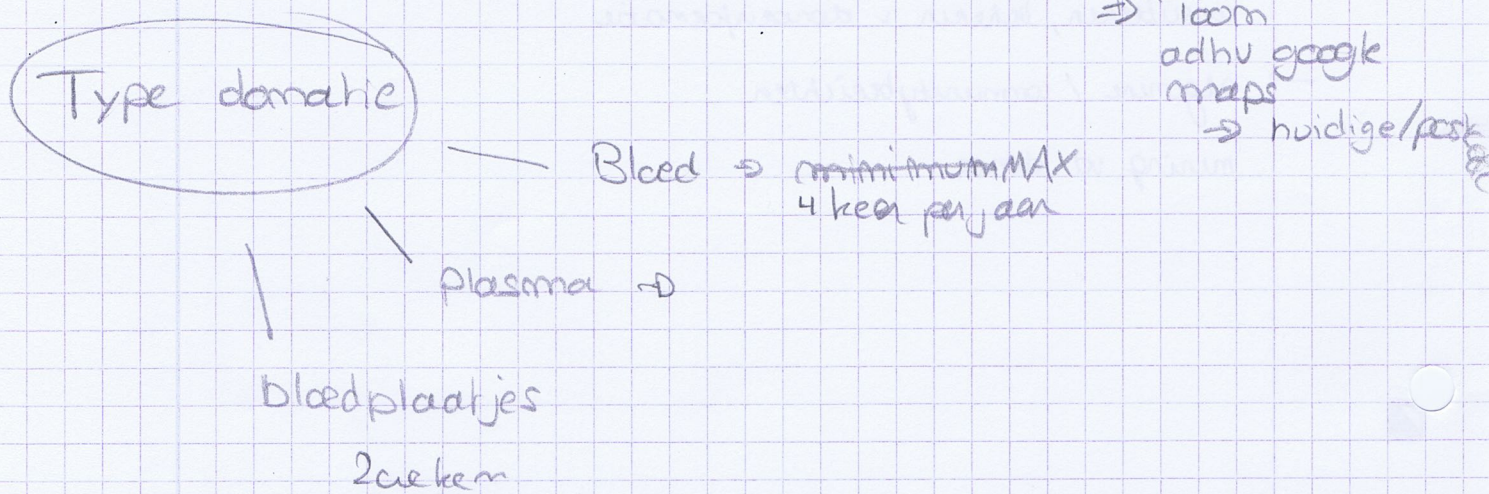 ⇒ loom
adhv google
maps
→ huidige/postcode
Type donatie
Bloed → minimum MAX
4 keer per jaar
plasma →
bloedplaatjes
2 weken